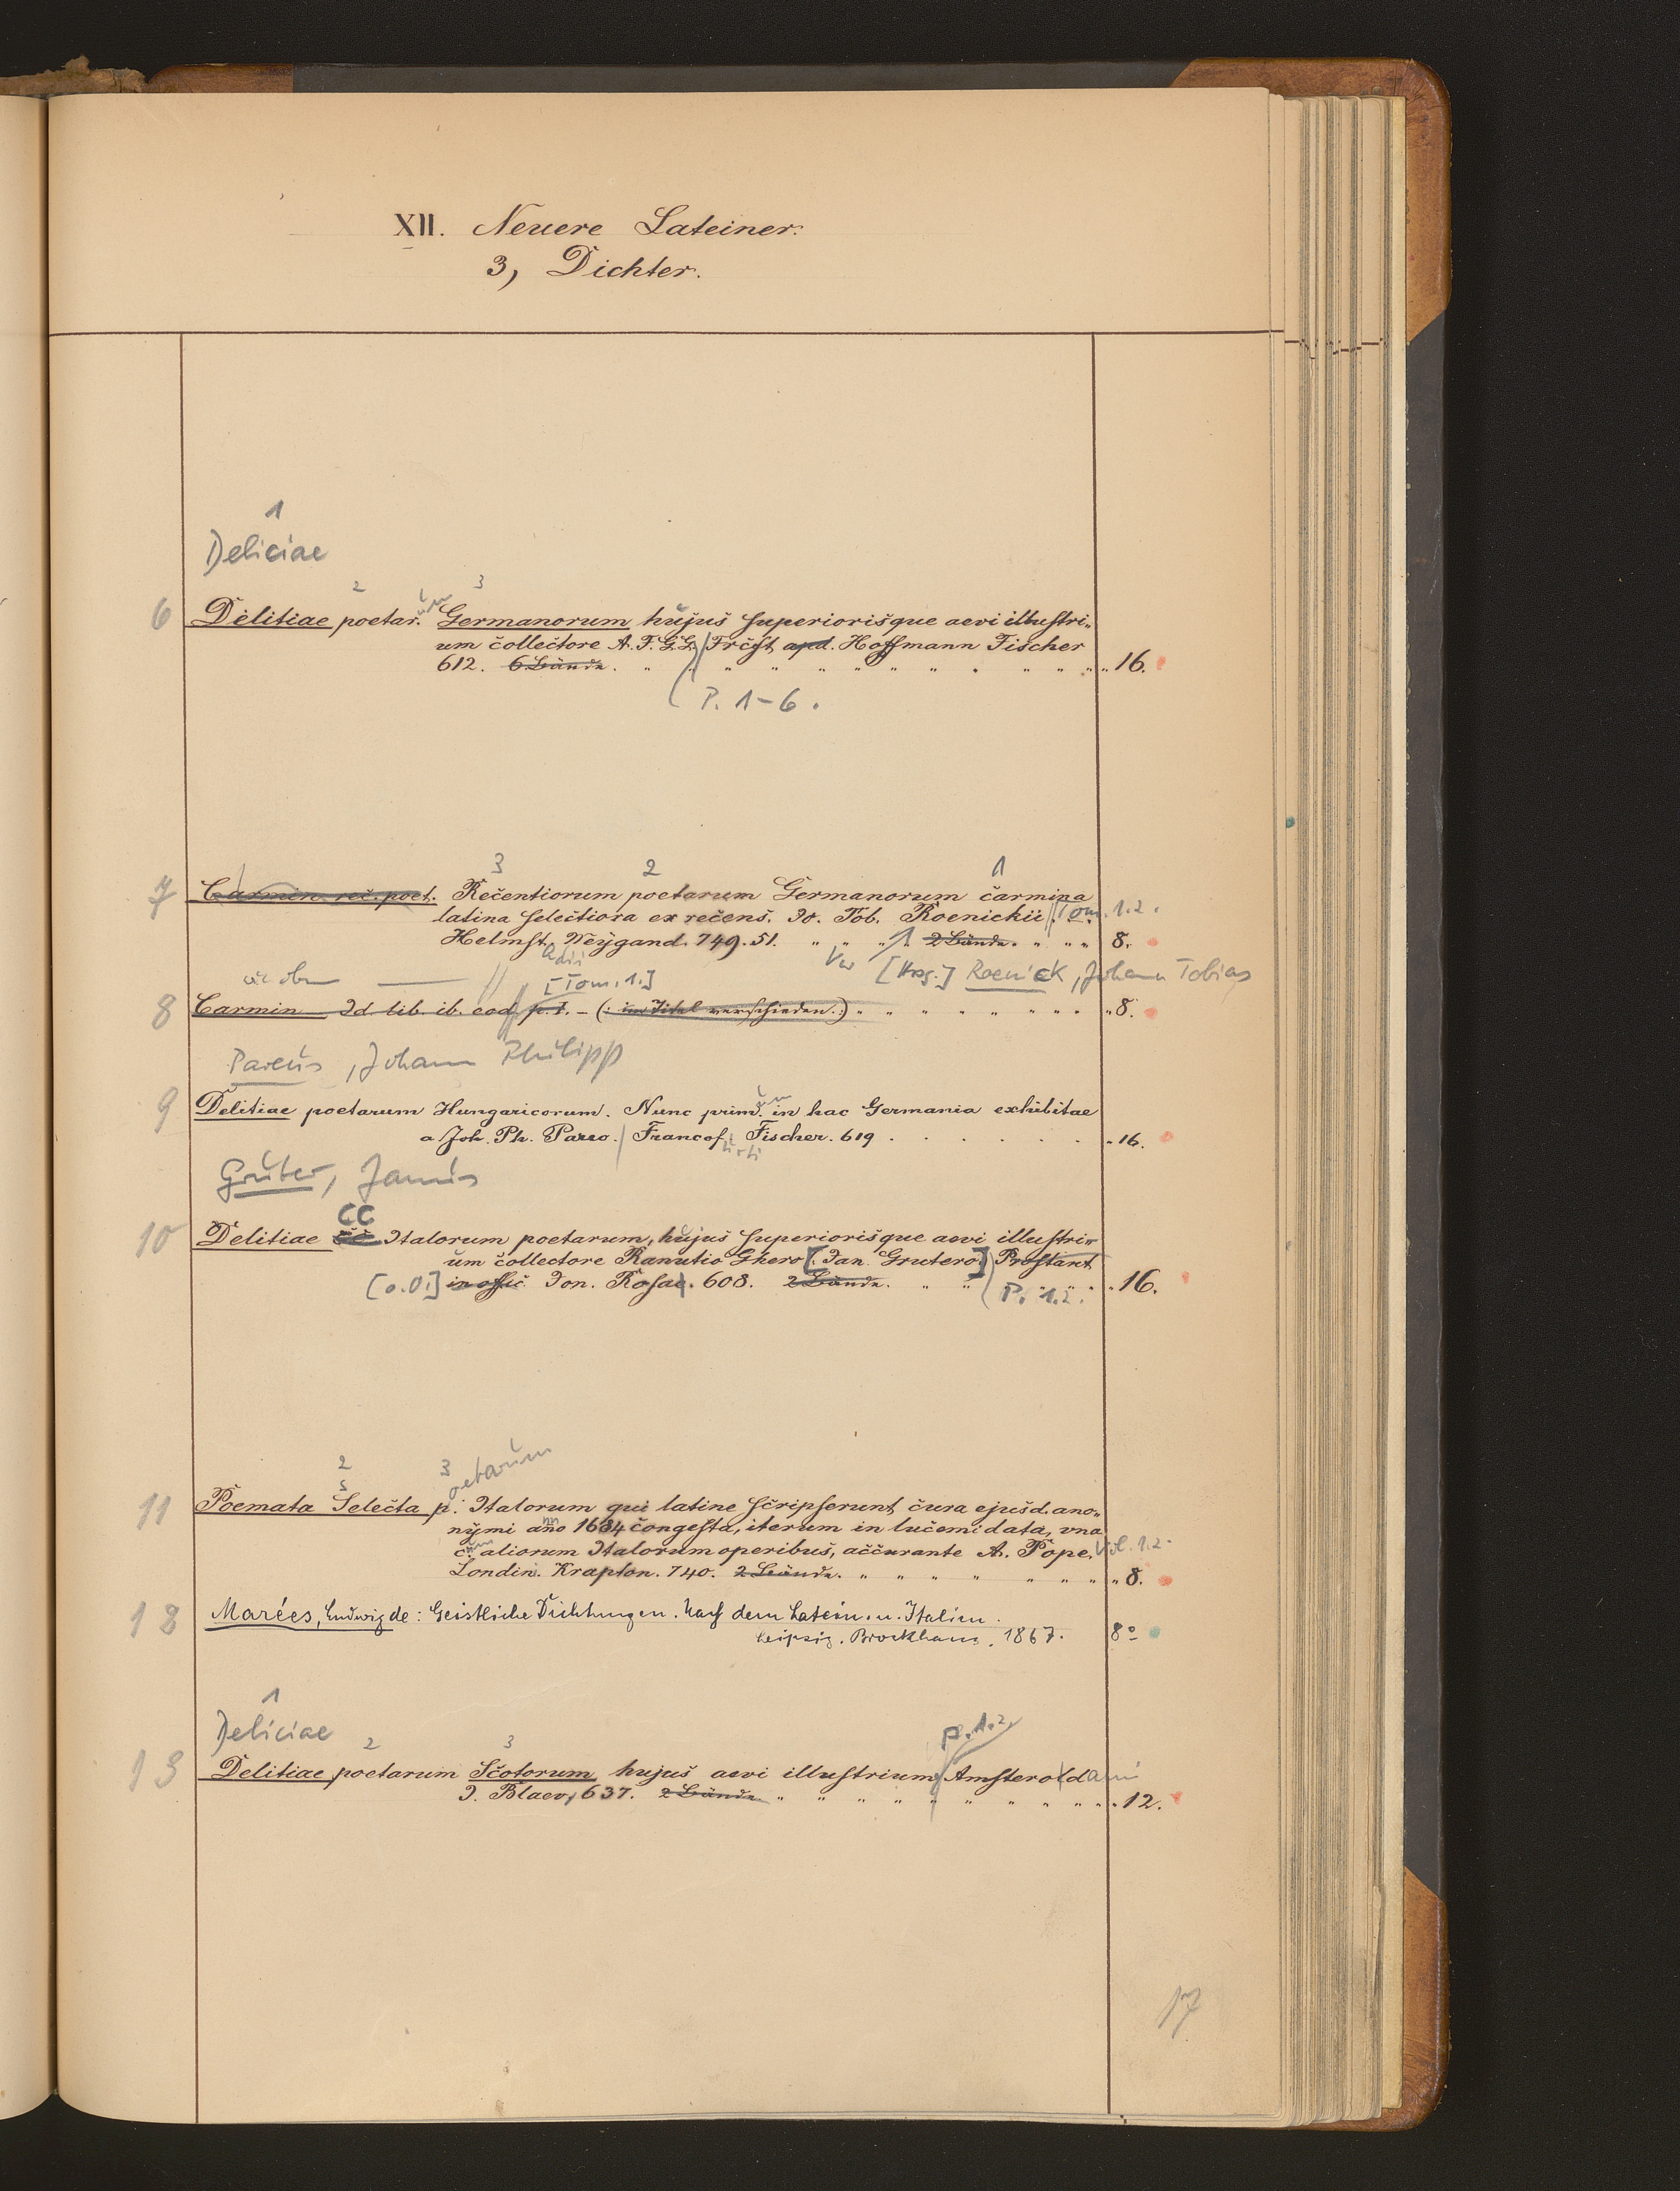 XII. Neuere Lateiner.
3, Dichter.
1
Deliciae
2 3
6 Delitiae poetar. um Germanorum hujus superiorisque aevi illustri-
um collectore A. F. G. G. / Frcft apd. Hoffmann Fischer
612. 6 Bände. 16.
P. 1-6.
3 2 1
7 Carmin rec. poet. Recentiorum poetarum Germanorum carmina
latina selectiora ex recens. Jo. Tob. Roenickii Tom. 1.2.
Helmst. Weygand. 749. 51. 2 Bände. 8.
adii
[Hrsg.] Roenick, Johann Tobias
[Tom. 1.]
8 Carmin Id. lib. ib. eod. p. I. - (: im Titel verschieden.:) 8.
Pareus, Johann Philipp
9 Delitiae poetarum Hungaricorum. Nunc prim. um in hac Germania exhibitae
a Joh. Ph. Pareo. / Francof. Fischer. 619 16.
furti
Gruter, Janus
CC
10 Delitiae CC Italorum poetarum, hujus superiorisque aevi illustri-
um collectore Ranutio Ghero [: Jan. Grutero :] Prostant
[o.O.] in offic. Jon. Rosae. 608. 2 Bände. P. 1.2. 16.
2 3 oetarum
11 Poemata Selecta p. Italorum qui latine scripserunt, cura ejusd. ano-
nymi ano 1684 congesta, iterum in lucem data, vna
c. um aliorum Italorum operibus, accurante A. Pope. Vol. 1.2.
Londin. Krapton. 740. 2 Bände. 8.
12 Marées, Ludwig de: Geistliche Dichtungen. Nach dem Latein. u. Italien.
Leipzig. Brockhaus. 1867. 8º
1
Deliciae P. 1.2.
2 3
13 Delitiae poetarum Scotorum hujus aevi illustrium Amsterodami
J. Blaev, 637. 2 Bände 12.
17